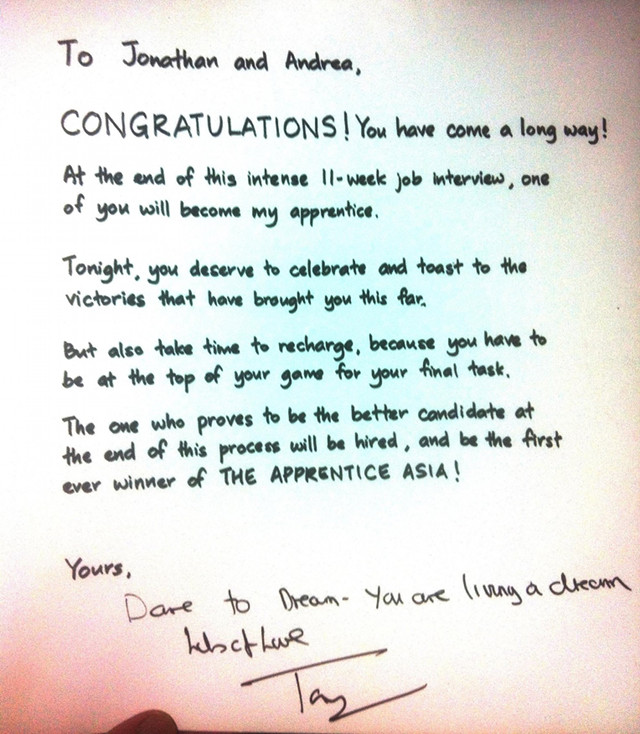 To Jonathan and Andrea,
CONGRATULATIONS! You have come a long way!
At the end of this intense 11-week job interview, one
of you will become my apprentice.
Tonight, you deserve to celebrate and toast to the
victories that have brought you this far.
But also take time to recharge, because you have to
be at the top of your game for your final task.
The one who proves to be the better candidate at
the end of this process will be hired, and be the first
ever winner of THE APPRENTICE ASIA!
Yours,
Dare to Dream - You are living a dream